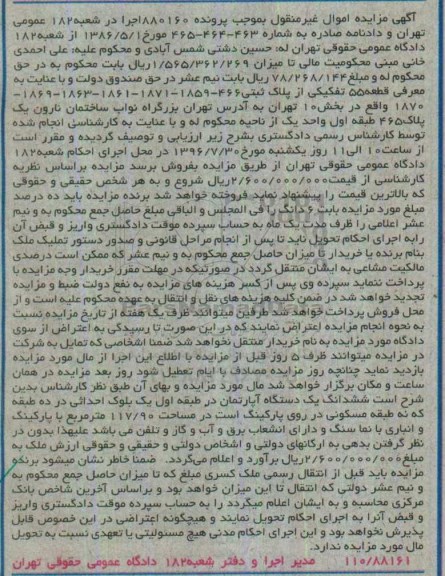 آگهی مزایده اموال غیرمنقول بموجب پرونده ۸۸۰۱۶۰اجرا در شعبه۱۸۲ عمومی
تهران و دادنامه صادره به شماره ۴۶۳-۴۶۴-۴۶۵ مورخ۱۳۸۶/۵/۱ از شعبه۱۸۲
دادگاه عمومی حقوقی تهران له: حسین دشتی شمس آبادی و محکوم علیه: علی احمدی
خانی مبنی محکومیت مالی تا میزان ۱/۵۶۵/۳۶۲/۲۶۹ریال بابت محکوم به در حق
محکوم له و مبلغ۷۸/۲۶۸/۱۴۴ ریال بابت نیم عشر در حق صندوق دولت و با عنایت به
معرفی قطعه۵۵ تفکیکی از پلاک ثبتی۴۶۶-۱۸۵۹-۱۸۷۱-۱۸۶۱-۱۸۶۳-۱۸۶۹-
۱۸۷۰ واقع در بخش۱۰ تهران به آدرس تهران بزرگراه نواب ساختمان نارون یک
پلاک۴۶۵ طبقه اول واحد یک از ناحیه محکوم له و با عنایت به کارشناسی انجام شده
توسط کارشناس رسمی دادگستری بشرح زیر ارزیابی و توصیف گردیده و مقرر است
از ساعت۱۰ الی۱۱ روز یکشنبه مورخ۱۳۹۶/۷/۳۰ در محل اجرای احکام شعبه۱۸۲
دادگاه عمومی حقوقی تهران از طریق مزایده بفروش برسد مزایده براساس نظریه
کارشناسی از قیمت۲/۶۰۰/۰۰۰/۰۰۰ریال شروع و به هر شخص حقیقی و حقوقی
که بالاترین قیمت را پیشنهاد نماید فروخته خواهد شد برنده مزایده باید ده درصد
مبلغ مورد مزایده بابت ۶دانگ را فی المجلس و الباقی مبلغ حاصل جمع محکوم به و نیم
عشر اعلامی را ظرف مدت یک ماه به حساب سپرده موقت دادگستری واریز و قبض آن
را به اجرای احکام تحویل ناید تا پس از انجام مراحل قانونی و صدور دستور تملیک ملک
بنام برنده یا خریدار تا میزان حاصل جمع محکوم به و نیم عشر که ممکن است درصدی
مالکیت مشاعی به ایشان منتقل گردد در صورتیکه در مهلت مقرر خریدار وجه مزایده با
پرداخت ننماید سپرده وی پس از کسر هزینه های مزایده به نفع دولت ضبط و مزایده
تجدید خواهد شد در ضمن کلیه هزینه های نقل و انتقال به عهده محکوم علیه است و از
محل فروش پرداخت خواهد شد طرفین میتوانند ظرف یک هفته از تاریخ مزایده نسبت
به نحوه انجام مزایده اعتراض نمایند که در این صورت تا رسیدگی به اعتراض از سوی
دادگاه مورد مزایده به نام خریدار منتقل نخواهد شد ضمنا اشخاصی که تمایل به شرکت
در مزایده میتوانند ظرف ۵ روز قبل از مزایده با اطلاع این اجرا از مال مورد مزایده
بازدید نماید چنانچه روز مزایده مصادف با ایام تعطیل شود روز بعد مزایده در همان
ساعت و مکان برگزار خواهد شد مال مورد مزایده و بهای آن طبق نظر کارشناس بدین
شرح است ششدانگ یک دستگاه آپارتمان در طبقه اول یک بلوک احداثی در ده طبقه
که نه طبقه مسکونی در روی پارکینگ است در مساحت ۱۱۷/۹۰ مترمربع با پارکینگ
و انباری با نما سنگ و دارای انشعاب برق و آب و گاز و تلفن می باشد علیهذا بدون در
نظر گرفتن بدهی به ارکانهای دولتی و اشخاص دولتی و حقیقی و حقوقی ارزش ملک به
مبلغ۲/۶۰۰/۰۰۰/۰۰۰ریال برآورد و اعلام می‌گردد. ضمنا خاطر نشان میشود برنده
مزایده باید قبل از انتقال رسمی ملک کسری مبلغ که تا میزان حاصل جمع محکوم به
و نیم عشر دولتی که انتقال تا این میزان خواهد بود و براساس آخرین شاخص بانک
مرکزی محاسبه و به ایشان اعلام میگردد را به حساب سپرده موقت دادگستری واریز
و قبض آنرا به اجرای احکام تحویل نمایند و هیچگونه اعتراضی در این خصوص قابل
پذیرش نخواهد بود و این اجرای احکام مدنی هیچ مسئولیتی یا تعهدی نسبت به تحویل
مال مورد مزایده ندارد.
۱۱۰/۸۸۱۶۱ مدیر اجرا و دفتر شعبه۱۸۲ دادگاه عمومی حقوقی تهران